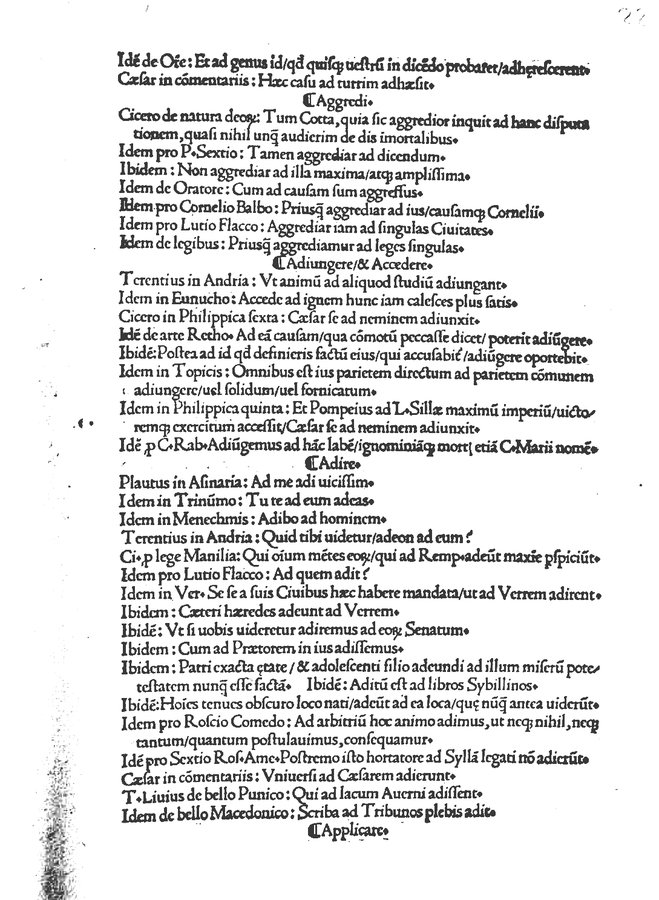 22
Idē de Ořе: Et ad genus id/qđ quiſqꝫ ueſtrū in dicēdo probaret/adhęreſcerent.
Cæſar in cōmentariis: Hæc caſu ad turrim adhæſit.
⸿Aggredi.
Cicero de natura deoꝝ: Tum Cotta, quia ſic aggredior inquit ad hanc diſputa
tionem, quaſi nihil unq̄ audierim de dis imortalibus.
Idem pro P. Sextio: Tamen aggrediar ad dicendum.
Ibidem: Non aggrediar ad illa maxima/atqꝫ ampliſſima.
Idem de Oratore: Cum ad cauſam ſum aggreſſus.
Idem pro Cornelio Balbo: Priusq̄ aggrediar ad ius/cauſamqꝫ Cornelii.
Idem pro Lutio Flacco: Aggrediar iam ad ſingulas Ciuitates.
Idem de legibus: Priusq̄ aggrediamur ad leges ſingulas.
⸿Adiungere/& Accedere.
Terentius in Andria: Vt animū ad aliquod ſtudiū adiungant.
Idem in Eunucho: Accede ad ignem hunc iam caleſces plus ſatis.
Cicero in Philippica ſexta: Cæſar ſe ad neminem adiunxit.
Idē de arte Retho. Ad eā cauſam/qua cōmotū peccaſſe dicet/ poterit adiūgere.
Ibidē: Poſtea ad id qđ definieris factū eius/qui accuſabit̃/adiūgere oportebit.
Idem in Topicis: Omnibus eſt ius parietem directum ad parietem cōmunem
adiungere/uel ſolidum/uel fornicatum.
Idem in Philippica quinta: Et Pompeius ad L. Sillæ maximū imperiū/uicto/
remqꝫ exercitum acceſſit/Cæſar ſe ad neminem adiunxit.
Idē ꝓ C. Rab. Adiūgemus ad hāc labē/ignominiāqꝫ mortꝭ etiā C. Marii nomē.
⸿Adire.
Plautus in Aſinaria: Ad me adi uiciſſim.
Idem in Trinūmo: Tu te ad eum adeas.
Idem in Menechmis: Adibo ad hominem.
Terentius in Andria: Quid tibi uidetur/adeon ad eum?
Ci. ꝓ lege Manilia: Qui oīum mētes eoꝝ/qui ad Remp. adeūt maxīe pſpiciūt.
Idem pro Lutio Flacco: Ad quem adit?
Idem in Ver. Se ſe a ſuis Ciuibus hæc habere mandata/ut ad Verrem adirent.
Ibidem: Cæteri hæredes adeunt ad Verrem.
Ibidē: Vt ſi uobis uideretur adiremus ad eoꝝ Senatum.
Ibidem: Cum ad Prætorem in ius adiſſemus.
Ibidem: Patri exacta ętate/& adoleſcenti filio adeundi ad illum miſerū pote/
teſtatem nunq̄ eſſe factā. Ibidē: Aditū eſt ad libros Sybillinos.
Ibidē: Hoīes tenues obſcuro loco nati/adeūt ad ea loca/quę nūq̄ antea uiderūt.
Idem pro Roſcio Comedo: Ad arbitriū hoc animo adimus, ut neqꝫ nihil, neqꝫ
tantum/quantum poſtulauimus, conſequamur.
Idē pro Sextio Roſ. Ame. Poſtremo iſto hortatore ad Syllā legati nō adierūt.
Cæſar in cōmentariis: Vniuerſi ad Cæſarem adierunt.
T. Liuius de bello Punico: Qui ad lacum Auerni adiſſent.
Idem de bello Macedonico: Scriba ad Tribunos plebis adit.
⸿Applicare.